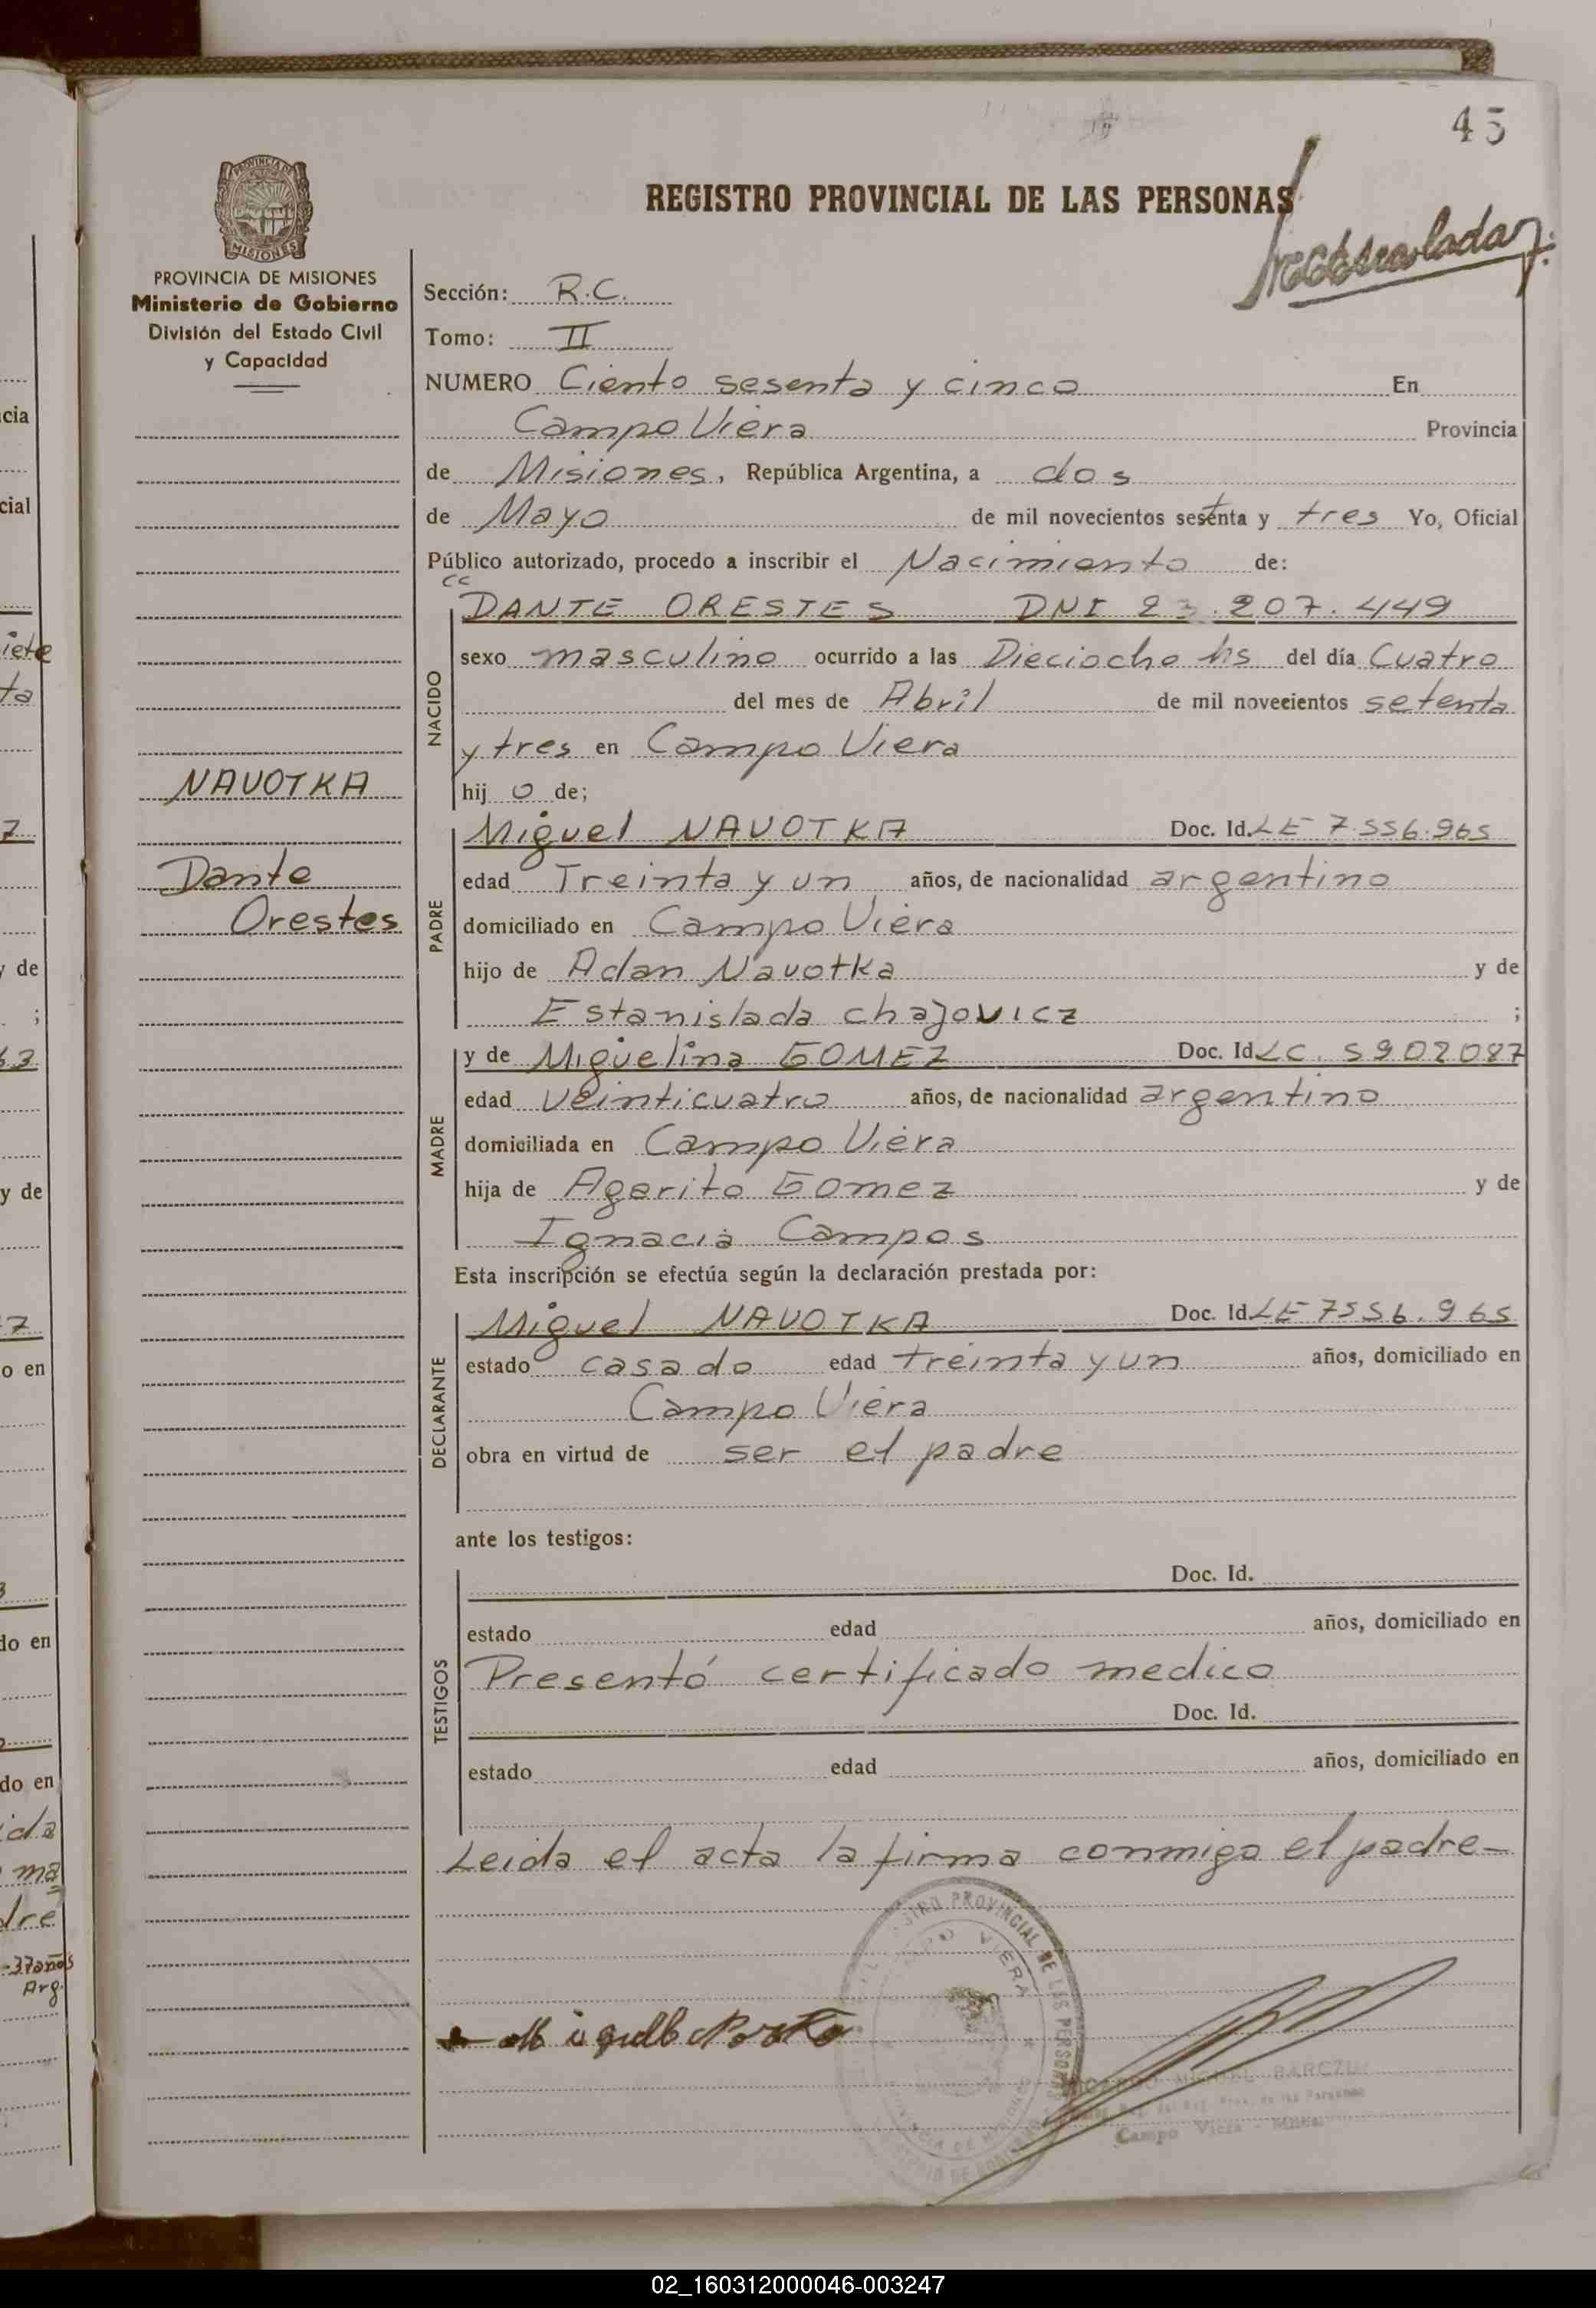 45
REGISTRO PROVINCIAL DE LAS PERSONAS
PROVINCIA DE MISIONES
Ministerio de Gobierno
División del Estado Civil
y Capacidad
NAVOTKA
Dante
Orestes
Sección: R.C.
Tomo: II
NUMERO Ciento sesenta y cinco En
Campo Viera Provincia
de Misiones, República Argentina, a dos
de Mayo de mil novecientos setenta y tres Yo, Oficial
Público autorizado, procedo a inscribir el Nacimiento de:
DANTE ORESTES DNI 23.207.449
NACIDO
sexo masculino ocurrido a las Dieciocho hs del día Cuatro
del mes de Abril de mil novecientos setenta
y tres en Campo Viera
hij o de;
PADRE
Miguel NAVOTKA Doc. Id. LE 7.556.965
edad Treinta y un años, de nacionalidad argentino
domiciliado en Campo Viera
hijo de Adan Navotka y de
Estanislada chajovicz ;
MADRE
y de Miguelina GOMEZ Doc. Id LC. 5902087
edad veinticuatro años, de nacionalidad argentino
domiciliada en Campo Viera
hija de Agarito Gomez y de
Ignacia Campos
Esta inscripción se efectúa según la declaración prestada por:
DECLARANTE
Miguel NAVOTKA Doc. Id. LE 7556.965
estado casado edad treinta y un años, domiciliado en
Campo Viera
obra en virtud de ser el padre
ante los testigos:
TESTIGOS
Doc. Id.
estado edad años, domiciliado en
Presentó certificado medico
Doc. Id.
estado edad años, domiciliado en
Leida el acta la firma conmigo el padre-
Campo Viera
02_160312000046-003247